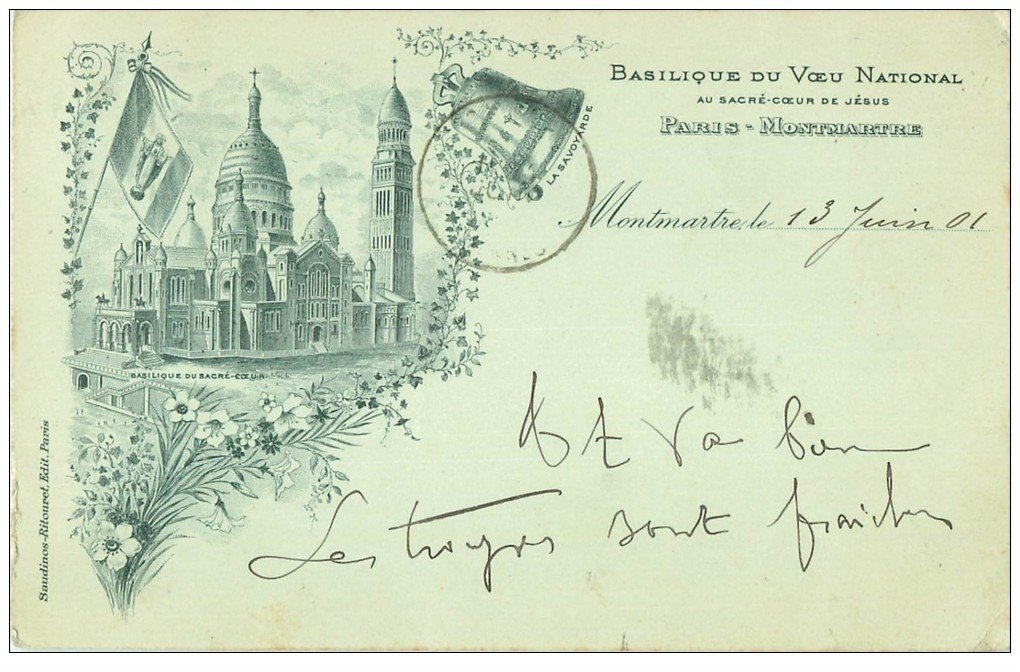 BASILIQUE DU VŒU NATIONAL
AU SACRÉ-CŒUR DE JÉSUS
PARIS - MONTMARTRE
LA SAVOYARDE
Montmartre, le 13 Juin 01
BASILIQUE DU SACRÉ-CŒUR
va bien
Les sont fraiches
Saudinos-Ritouret, Edit. Paris